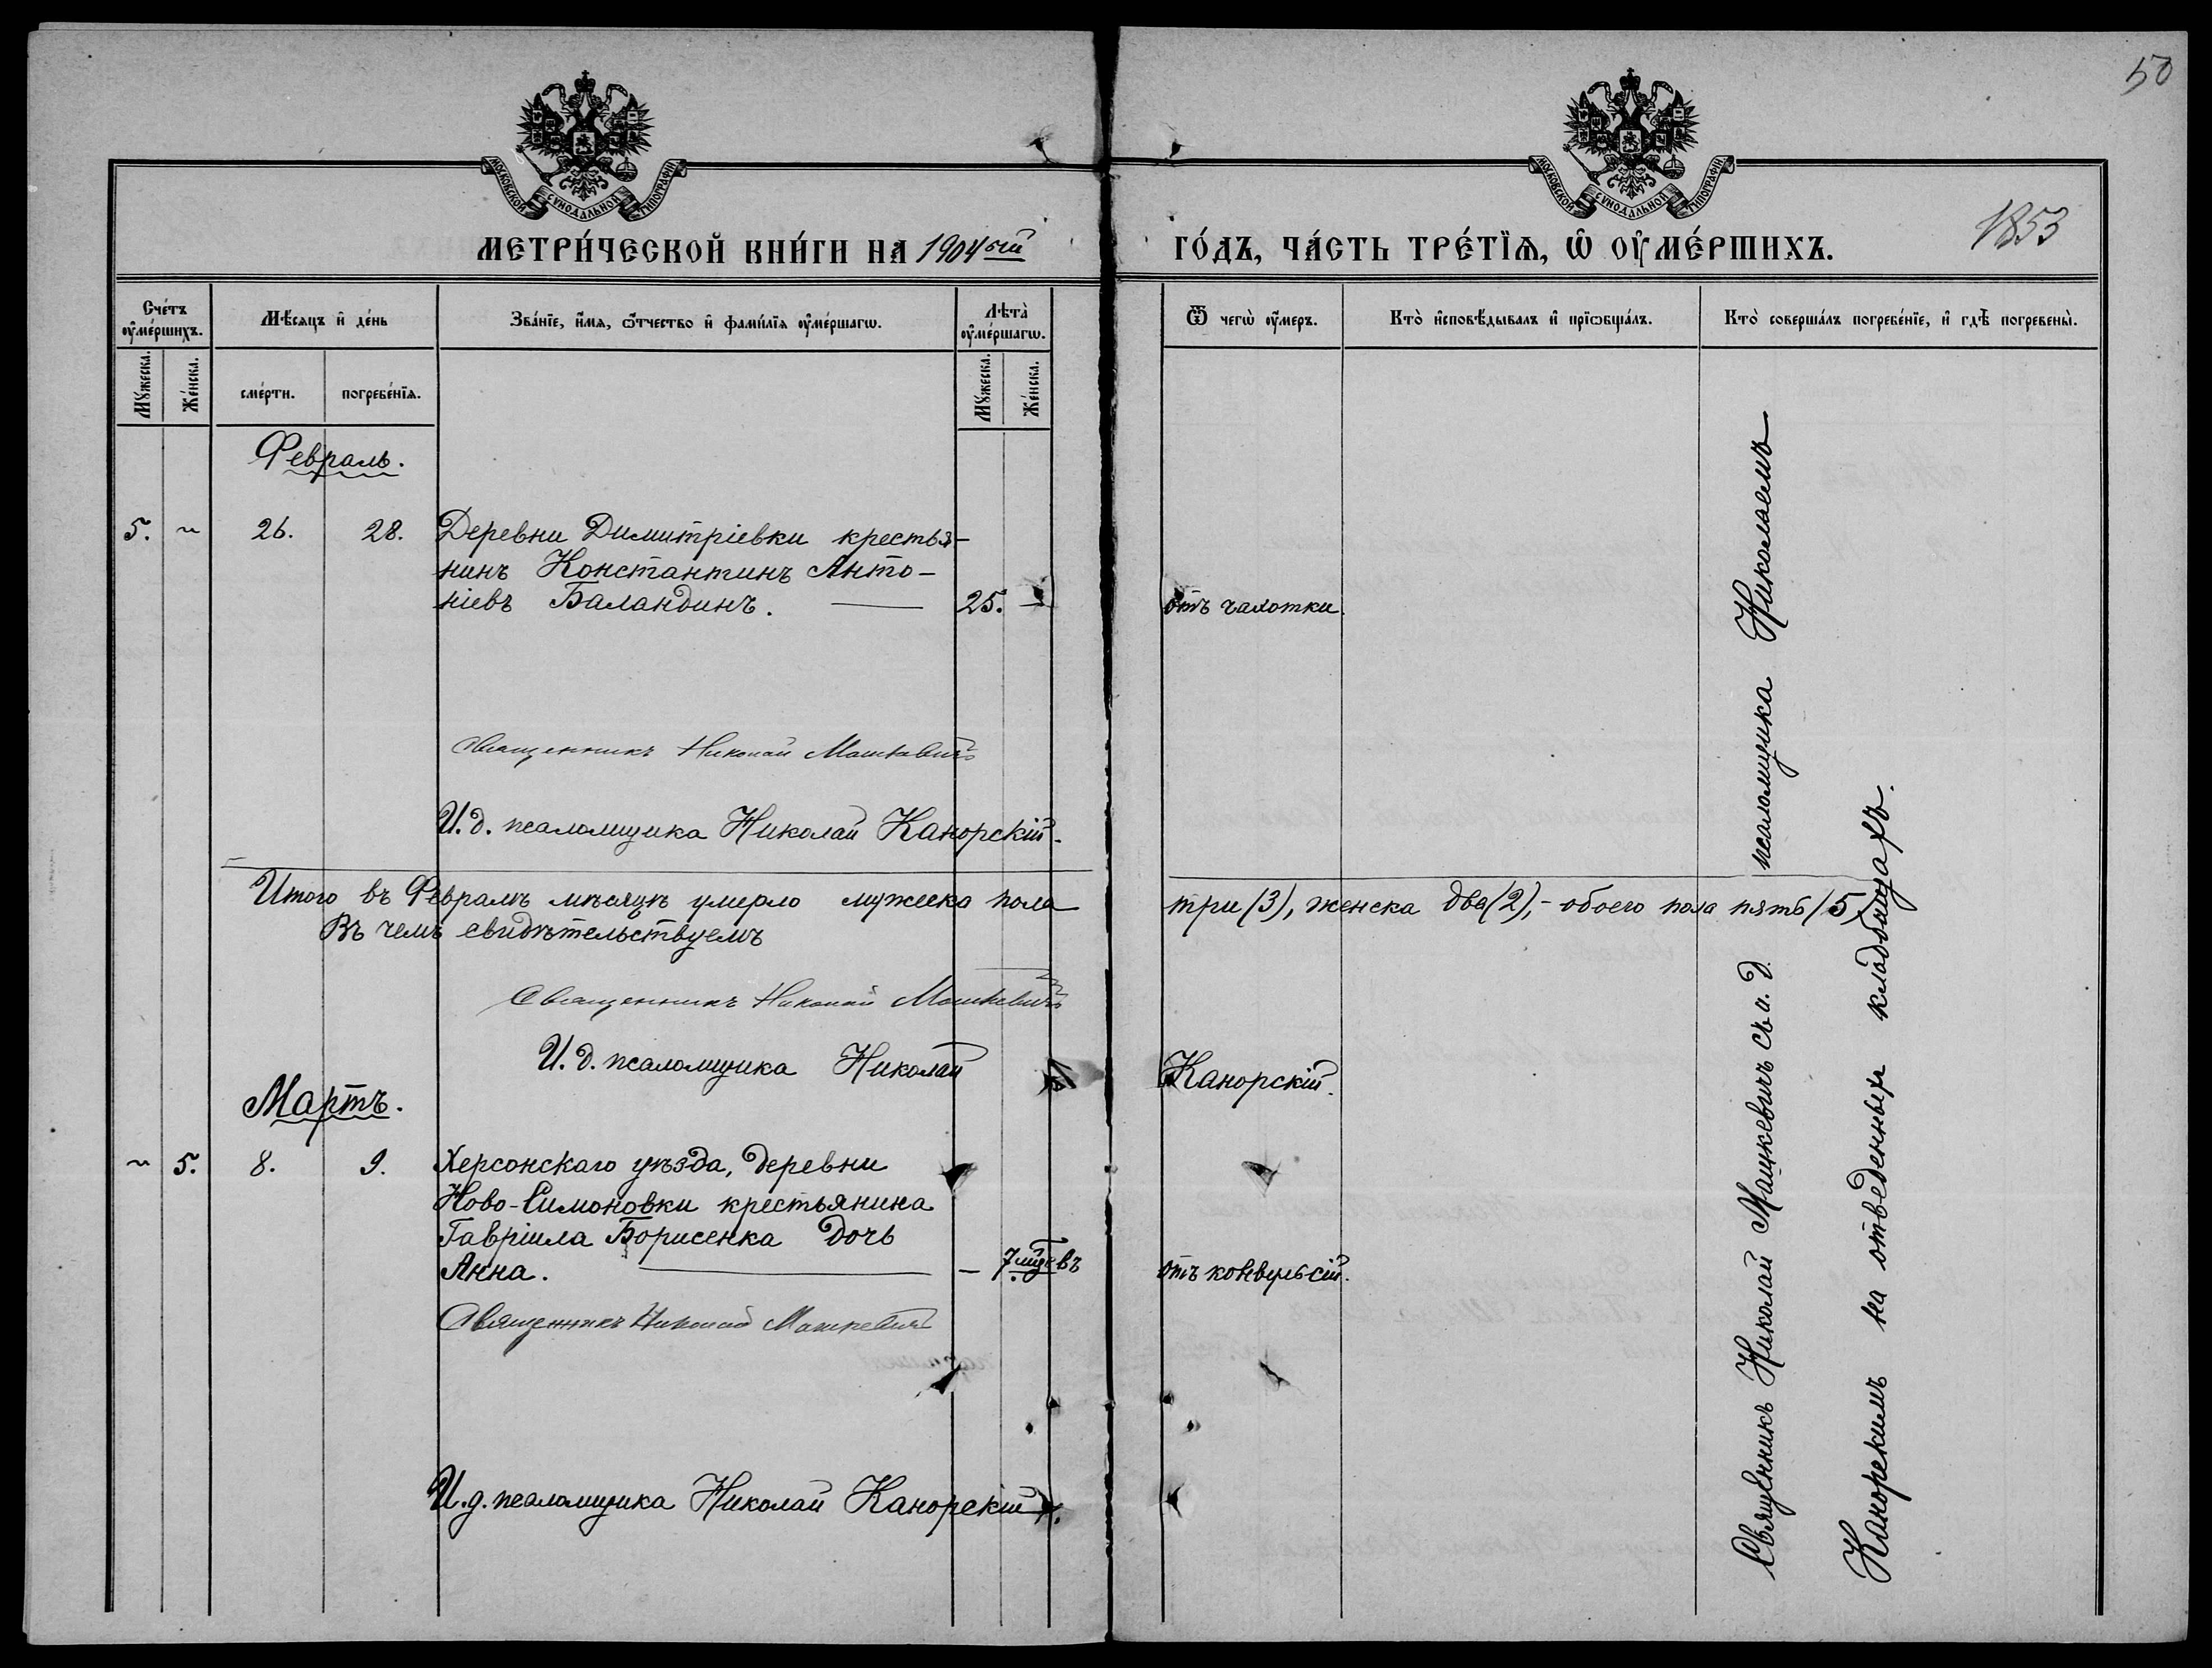 50
МОСКОВСКОЙ СѴНОДАЛЬНОЙ ТИПОГРАФІИ
МОСКОВСКОЙ СѴНОДАЛЬНОЙ ТИПОГРАФІИ
1853
МЕТРИ́ЧЕСКОЙ КНИ́ГИ НА 1904ый ГО́ДЪ, ЧА́СТЬ ТРЕ́ТЇѦ, Ѽ ОУ҆МЕ́РШИХЪ.
Сче́тъ оу҆ме́ршихъ.
Мѣ́сѧцъ и҆ де́нь
Зва́нїе, и҆́мѧ, ѻ҆́тчество и҆ фами́лїѧ оу҆ме́ршагѡ.
Лѣта̀ оу҆ме́ршагѡ.
Ѿ чегѡ̀ оу҆́меръ.
Кто̀ и҆сповѣ́дывалъ и҆ прїѡбща́лъ.
Кто̀ соверша́лъ погребе́нїе, и҆ гдѣ̀ погребены̀.
Мꙋ́жеска.
Же́нска.
сме́рти.
погребе́нїѧ.
Мꙋ́жеска.
Же́нска.
Февраль.
5. ~ 26. 28. Деревни Димитріевки крестья-
нинъ Константинъ Анто-
ніевъ Баландинъ. — 25. — отъ чахотки.
Священникъ Николай Машкевичъ
И. д. псаломщика Николай Канорскій.
Итого въ Февралѣ мѣсяцѣ умерло мужеска пола три (3), женска два (2), - обоего пола пять (5)
Въ чемъ свидѣтельствуемъ
Священникъ Николай Машкевичъ
И. д. псаломщика Николай Канорскій.
Мартъ.
~ 5. 8. 9. Херсонскаго уѣзда, деревни
Ново-Симоновки крестьянина
Гавріила Борисенка дочь
Анна. — — 7 мцевъ отъ конвульсій.
Священникъ Николай Машкевичъ
И. д. псаломщика Николай Канорскій.
Священникъ Николай Машкевичъ съ и. д. псаломщика Николаемъ
Канорскимъ на отведенныхъ кладбищахъ.